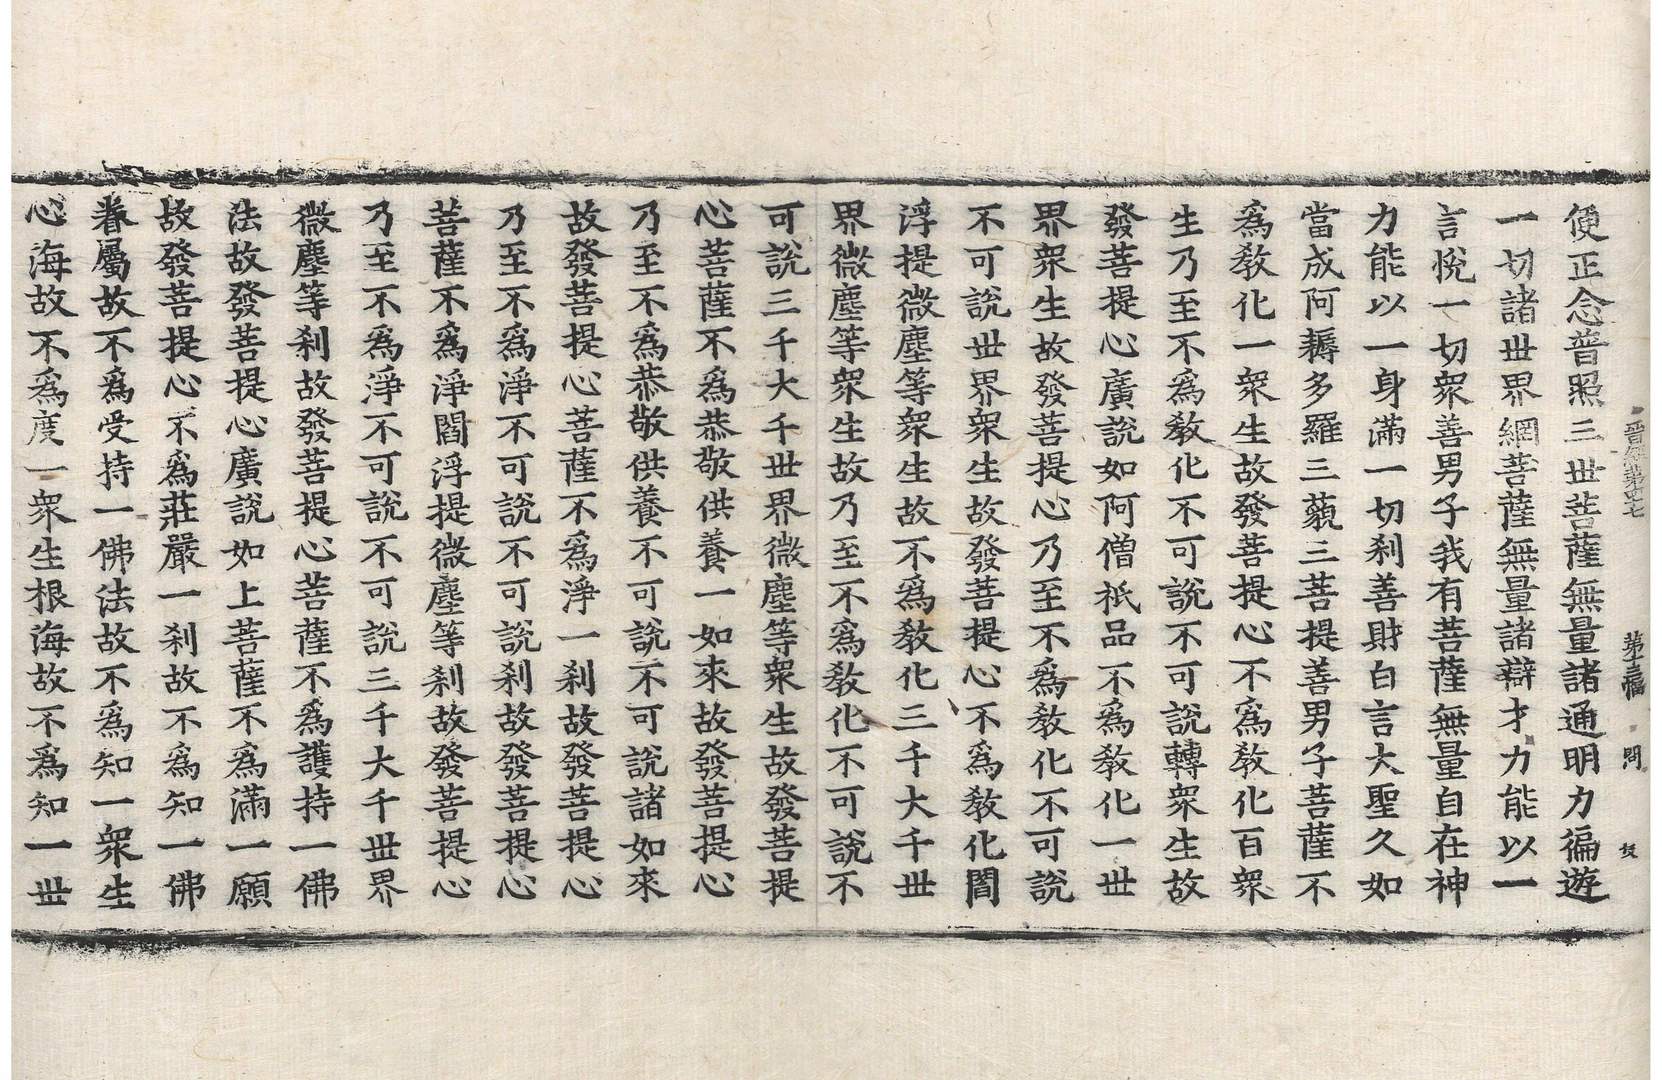 第十三幅 問
便正念普照三世菩薩無量諸通明力徧遊
一切諸世界網菩薩無量諸辯才力能以一
言悅一切衆善男子我有菩薩無量自在神
力能以一身滿一切刹善財白言大聖久如
當成阿耨多羅三藐三菩提善男子菩薩不
爲教化一衆生故發菩提心不爲教化百衆
生乃至不爲教化不可說不可說轉衆生故
發菩提心廣說如阿僧祇品不爲教化一世
界衆生故發菩提心乃至不爲教化不可說
不可說世界衆生故發菩提心不爲教化閻
浮提微塵等衆生故不爲教化三千大千世
界微塵等衆生故乃至不爲教化不可說不
可說三千大千世界微塵等衆生故發菩提
心菩薩不爲恭敬供養一如來故發菩提心
乃至不爲恭敬供養不可說不可說諸如來
故發菩提心菩薩不爲淨一刹故發菩提心
乃至不爲淨不可說不可說刹故發菩提心
菩薩不爲淨閻浮提微塵等刹故發菩提心
乃至不爲淨不可說不可說三千大千世界
微塵等刹故發菩提心菩薩不爲護持一佛
法故發菩提心廣說如上菩薩不爲滿一願
故發菩提心不爲莊嚴一刹故不爲知一佛
眷屬故不爲受持一佛法故不爲知一衆生
心海故不爲度一衆生根海故不爲知一世